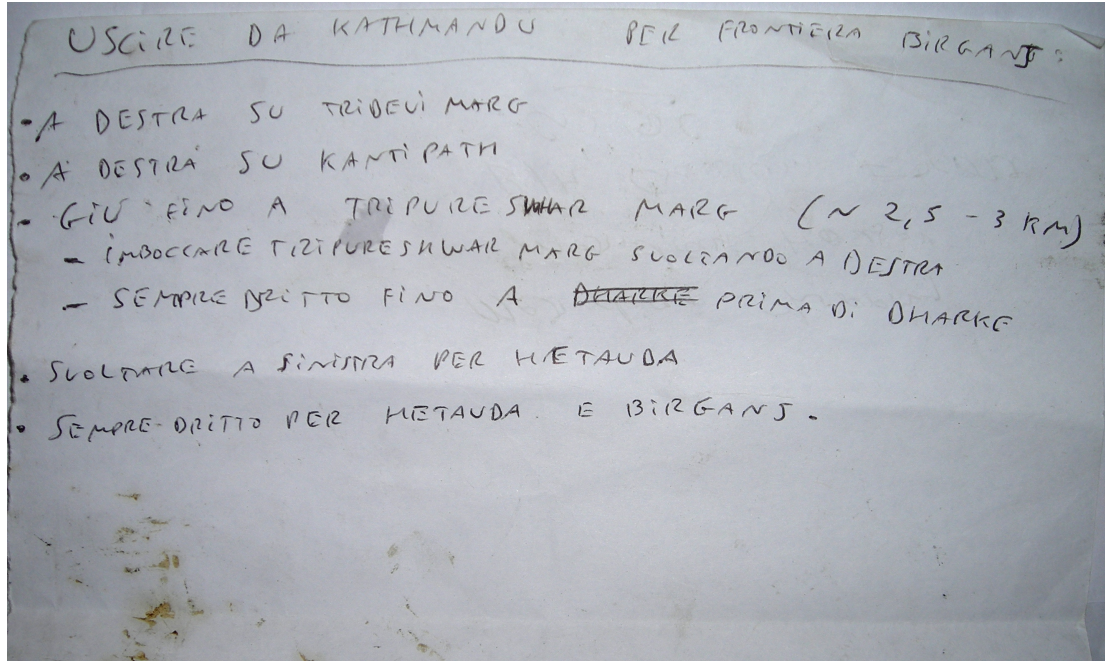 USCIRE DA KATHMANDU PER FRONTIERA BIRGANJ:
• A DESTRA SU TRIDEVI MARG
• A DESTRA SU KANTIPATH
- GIÙ FINO A TRIPURESHWAR MARG (~ 2,5 - 3 KM)
- IMBOCCARE TRIPURESHWAR MARG SVOLTANDO A DESTRA
- SEMPRE DRITTO FINO A DHARKE PRIMA DI DHARKE
• SVOLTARE A SINISTRA PER HETAUDA
• SEMPRE DRITTO PER HETAUDA E BIRGANJ.